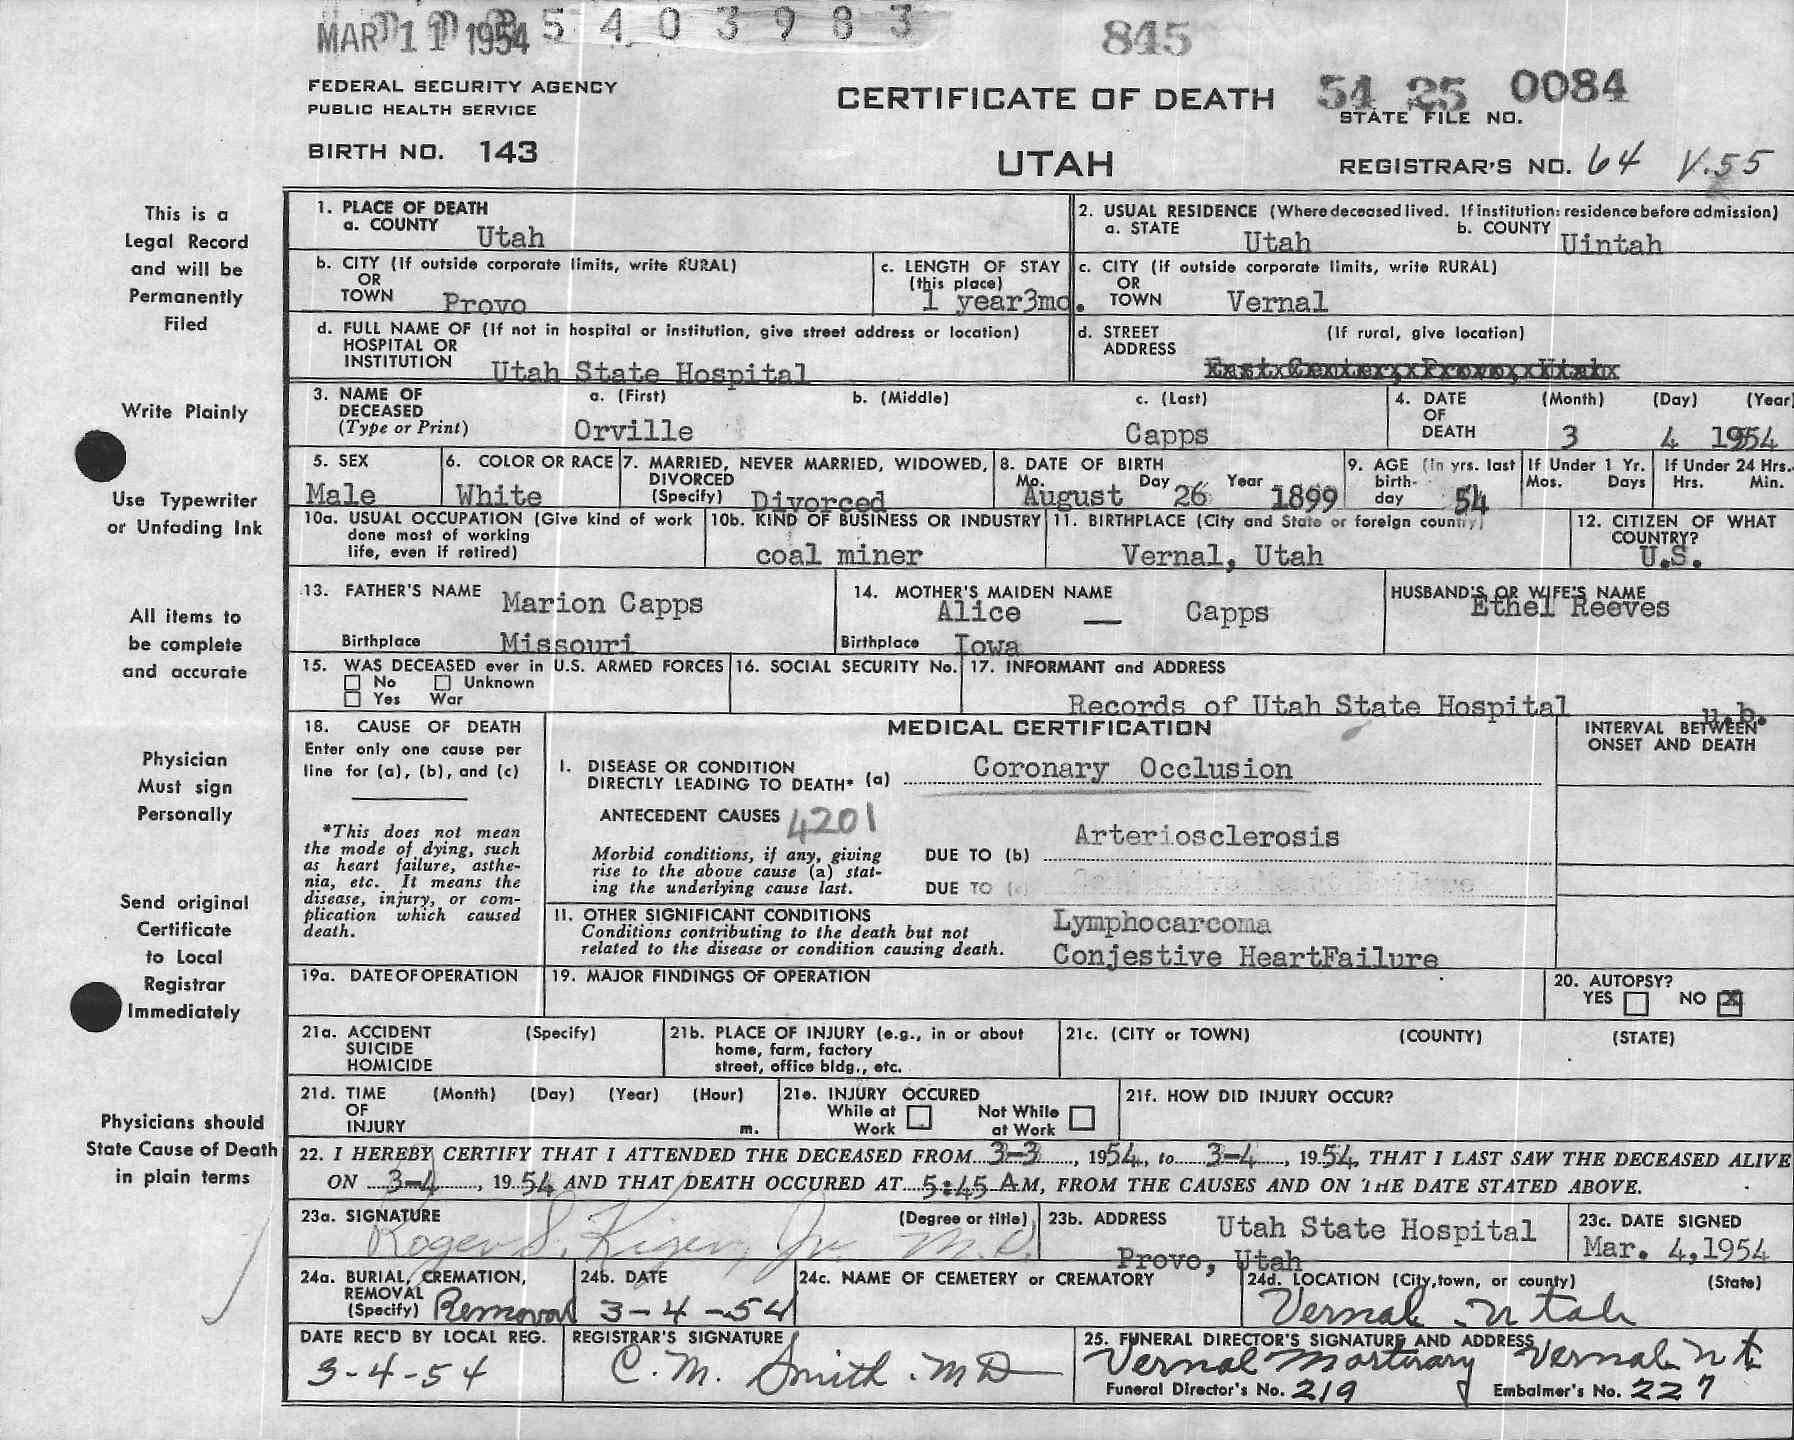 MAR 11 1954 5 4 0 3 9 8 3 845
FEDERAL SECURITY AGENCY
PUBLIC HEALTH SERVICE
CERTIFICATE OF DEATH
54 25 0084
STATE FILE NO.
BIRTH NO. 143
UTAH
REGISTRAR'S NO. 64 V.55
This is a
Legal Record
and will be
Permanently
Filed
Write Plainly
Use Typewriter
or Unfading Ink
All items to
be complete
and accurate
Physician
Must sign
Personally
Send original
Certificate
to Local
Registrar
Immediately
Physicians should
State Cause of Death
in plain terms
1. PLACE OF DEATH
a. COUNTY Utah
2. USUAL RESIDENCE (Where deceased lived. If institution: residence before admission)
a. STATE Utah b. COUNTY Uintah
b. CITY (If outside corporate limits, write RURAL)
OR
TOWN Provo
c. LENGTH OF STAY
(this place)
1 year3mo.
c. CITY (If outside corporate limits, write RURAL)
OR
TOWN Vernal
d. FULL NAME OF (If not in hospital or institution, give street address or location)
HOSPITAL OR
INSTITUTION Utah State Hospital
d. STREET (If rural, give location)
ADDRESS
East Center, Provo, Utah
3. NAME OF a. (First) b. (Middle) c. (Last)
DECEASED
(Type or Print) Orville Capps
4. DATE (Month) (Day) (Year)
OF
DEATH 3 4 1954
5. SEX
Male
6. COLOR OR RACE
White
7. MARRIED, NEVER MARRIED, WIDOWED,
DIVORCED
(Specify) Divorced
8. DATE OF BIRTH
Mo. Day Year
August 26 1899
9. AGE (In yrs. last
birth-
day 54
If Under 1 Yr.
Mos. Days
If Under 24 Hrs.
Hrs. Min.
10a. USUAL OCCUPATION (Give kind of work
done most of working
life, even if retired)
10b. KIND OF BUSINESS OR INDUSTRY
coal miner
11. BIRTHPLACE (City and State or foreign country)
Vernal, Utah
12. CITIZEN OF WHAT
COUNTRY?
U.S.
13. FATHER'S NAME Marion Capps
Birthplace Missouri
14. MOTHER'S MAIDEN NAME
Alice — Capps
Birthplace Iowa
HUSBAND'S OR WIFE'S NAME
Ethel Reeves
15. WAS DECEASED ever in U.S. ARMED FORCES
No Unknown
Yes War
16. SOCIAL SECURITY No.
17. INFORMANT and ADDRESS
Records of Utah State Hospital
u.b.
18. CAUSE OF DEATH
Enter only one cause per
line for (a), (b), and (c)
*This does not mean
the mode of dying, such
as heart failure, asthe-
nia, etc. It means the
disease, injury, or com-
plication which caused
death.
MEDICAL CERTIFICATION
INTERVAL BETWEEN
ONSET AND DEATH
I. DISEASE OR CONDITION
DIRECTLY LEADING TO DEATH* (a) Coronary Occlusion
ANTECEDENT CAUSES 4201
Morbid conditions, if any, giving
rise to the above cause (a) stat-
ing the underlying cause last.
DUE TO (b) Arteriosclerosis
DUE TO (c)
II. OTHER SIGNIFICANT CONDITIONS
Conditions contributing to the death but not
related to the disease or condition causing death.
Lymphocarcoma
Conjestive HeartFailure
19a. DATE OF OPERATION
19. MAJOR FINDINGS OF OPERATION
20. AUTOPSY?
YES NO X
21a. ACCIDENT (Specify)
SUICIDE
HOMICIDE
21b. PLACE OF INJURY (e.g., in or about
home, farm, factory
street, office bldg., etc.
21c. (CITY or TOWN) (COUNTY) (STATE)
21d. TIME (Month) (Day) (Year) (Hour)
OF
INJURY m.
21e. INJURY OCCURED
While at Not While
Work at Work
21f. HOW DID INJURY OCCUR?
22. I HEREBY CERTIFY THAT I ATTENDED THE DECEASED FROM 3-3, 1954, to 3-4, 1954, THAT I LAST SAW THE DECEASED ALIVE
ON 3-4, 1954 AND THAT DEATH OCCURED AT 5:45 AM, FROM THE CAUSES AND ON THE DATE STATED ABOVE.
23a. SIGNATURE (Degree or title)
Roger S. Kiger, Jr. M.D.
23b. ADDRESS Utah State Hospital
Provo, Utah
23c. DATE SIGNED
Mar. 4, 1954
24a. BURIAL, CREMATION,
REMOVAL
(Specify) Removal
24b. DATE
3-4-54
24c. NAME OF CEMETERY or CREMATORY
24d. LOCATION (City, town, or county) (State)
Vernal - Utah
DATE REC'D BY LOCAL REG.
3-4-54
REGISTRAR'S SIGNATURE
C. M. Smith. MD
25. FUNERAL DIRECTOR'S SIGNATURE AND ADDRESS
Vernal Mortuary Vernal Ut
Funeral Director's No. 219 Embalmer's No. 227